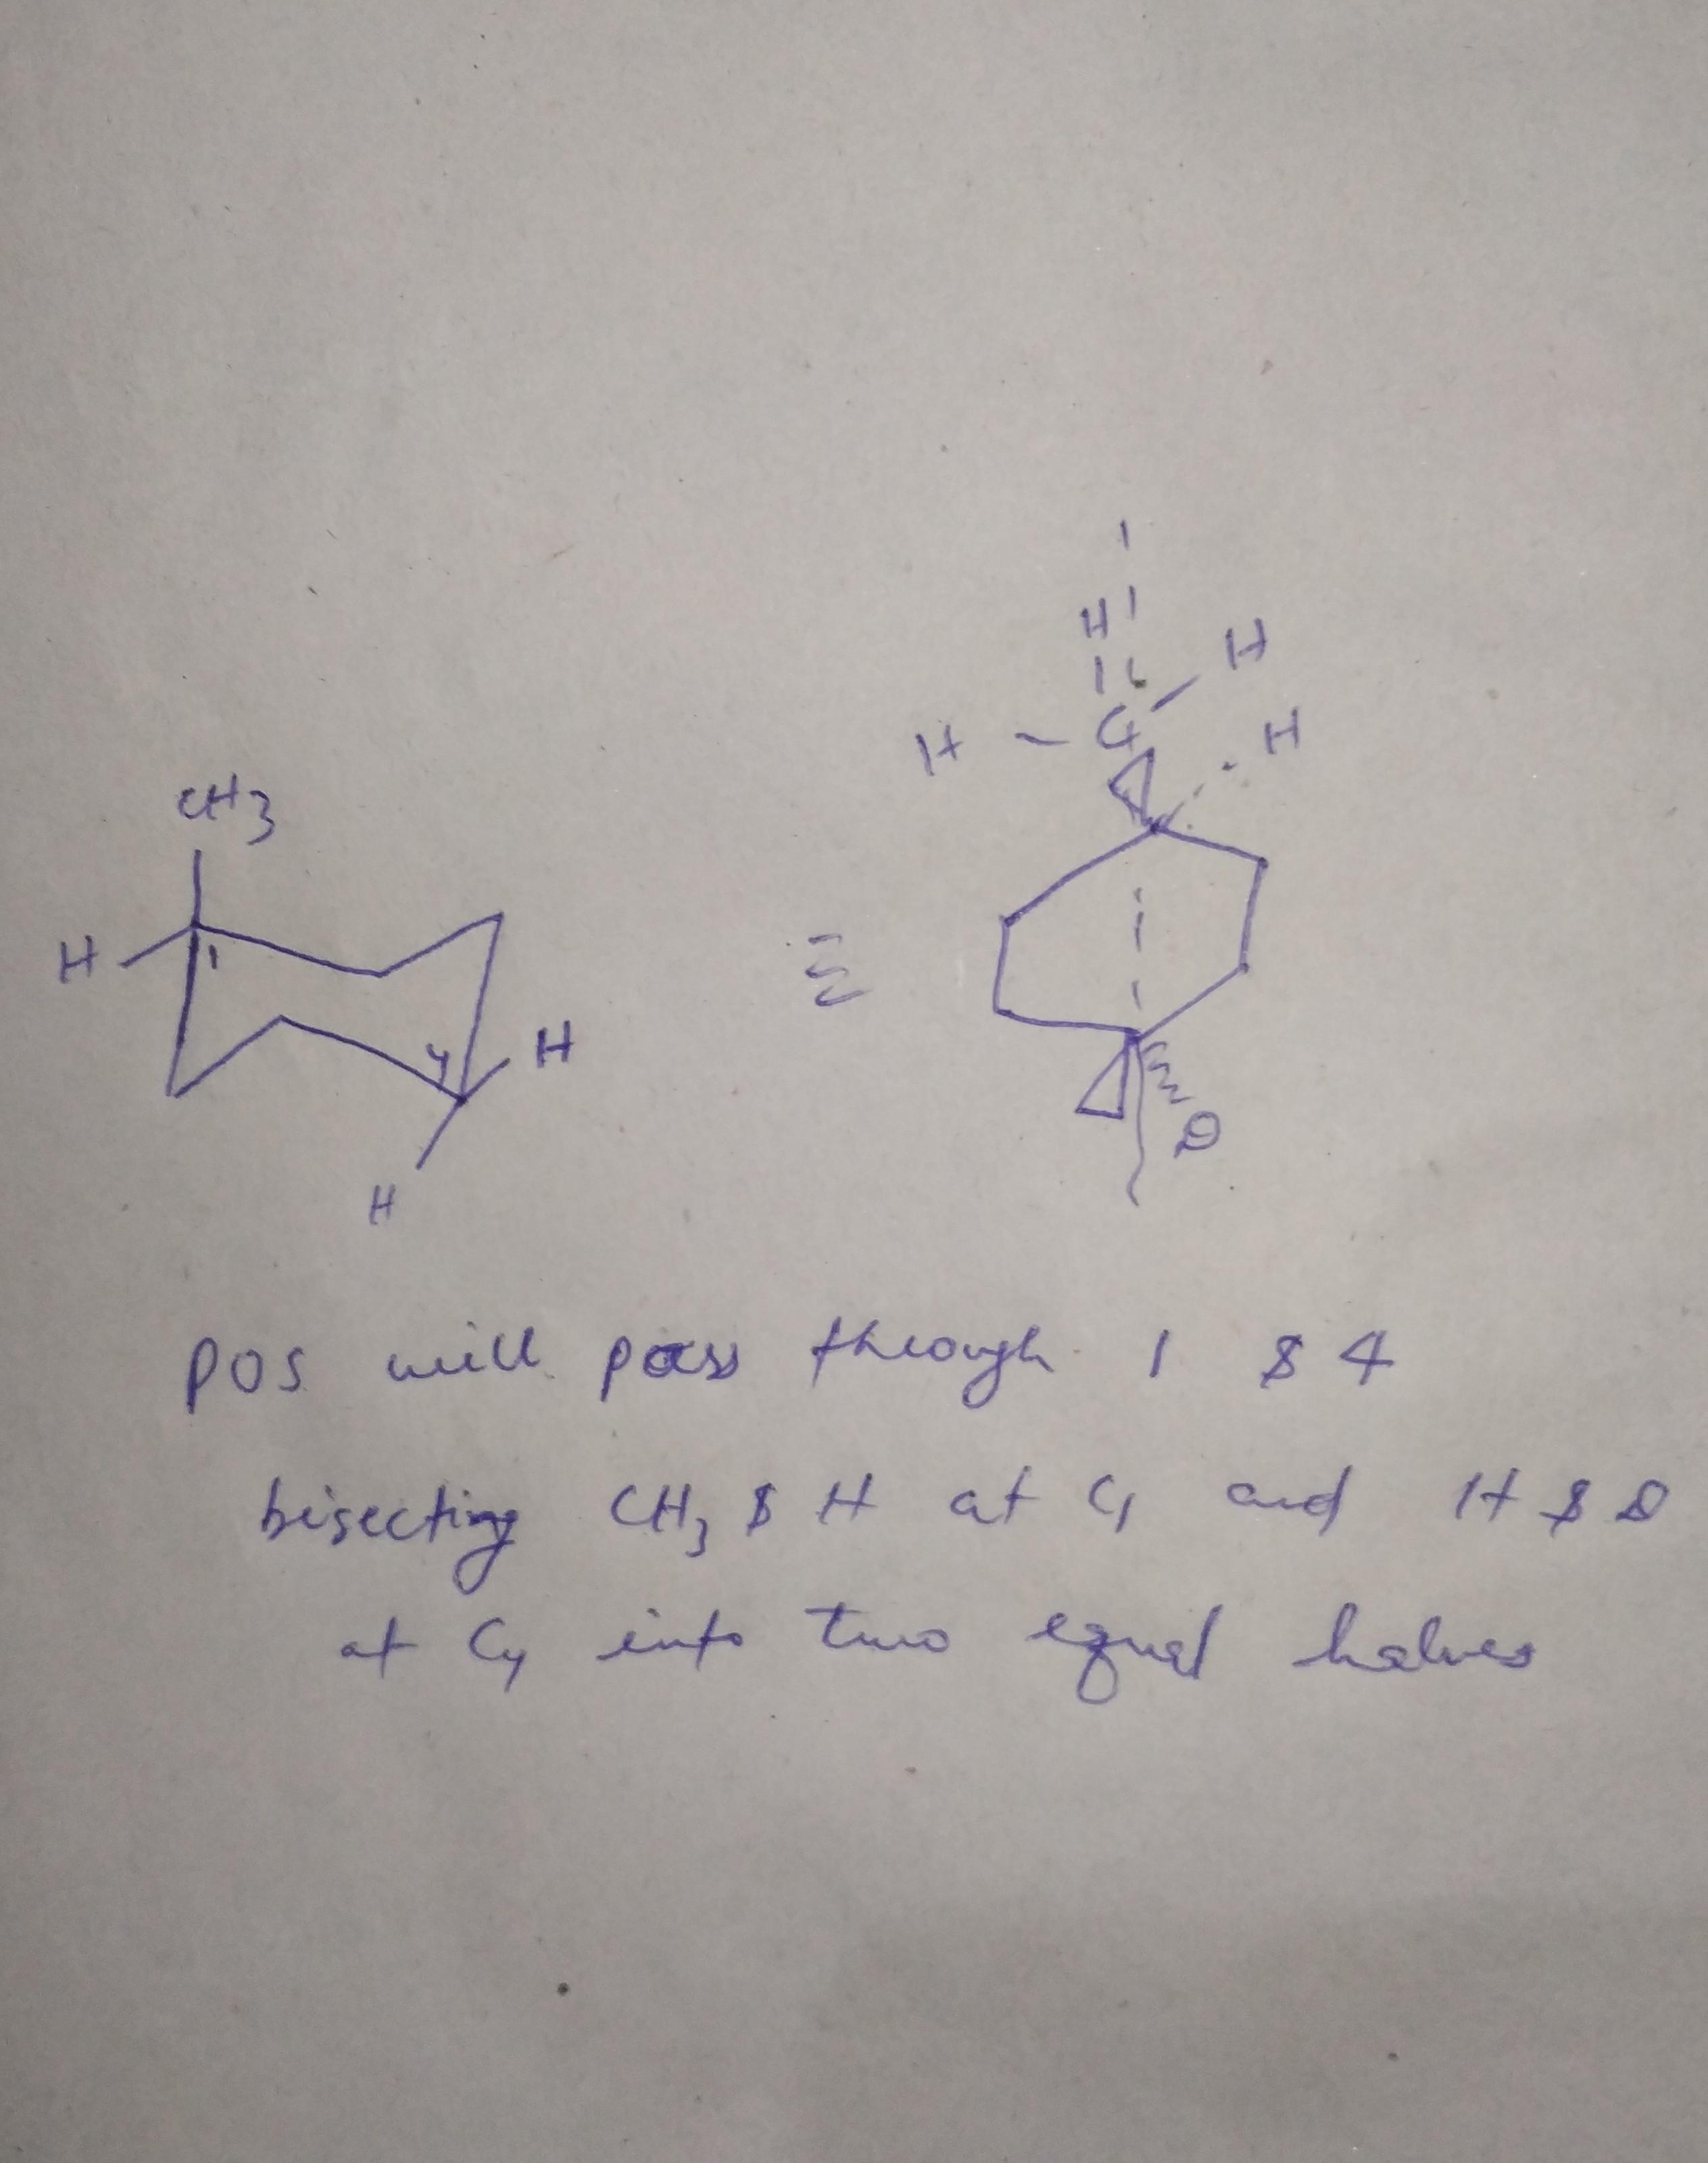 H
H H
H C H
CH3
H 1
≡
4 H
H
D
POS will pass through 1 & 4
bisecting CH3 & H at C1 and H & D
at C4 into two equal halves